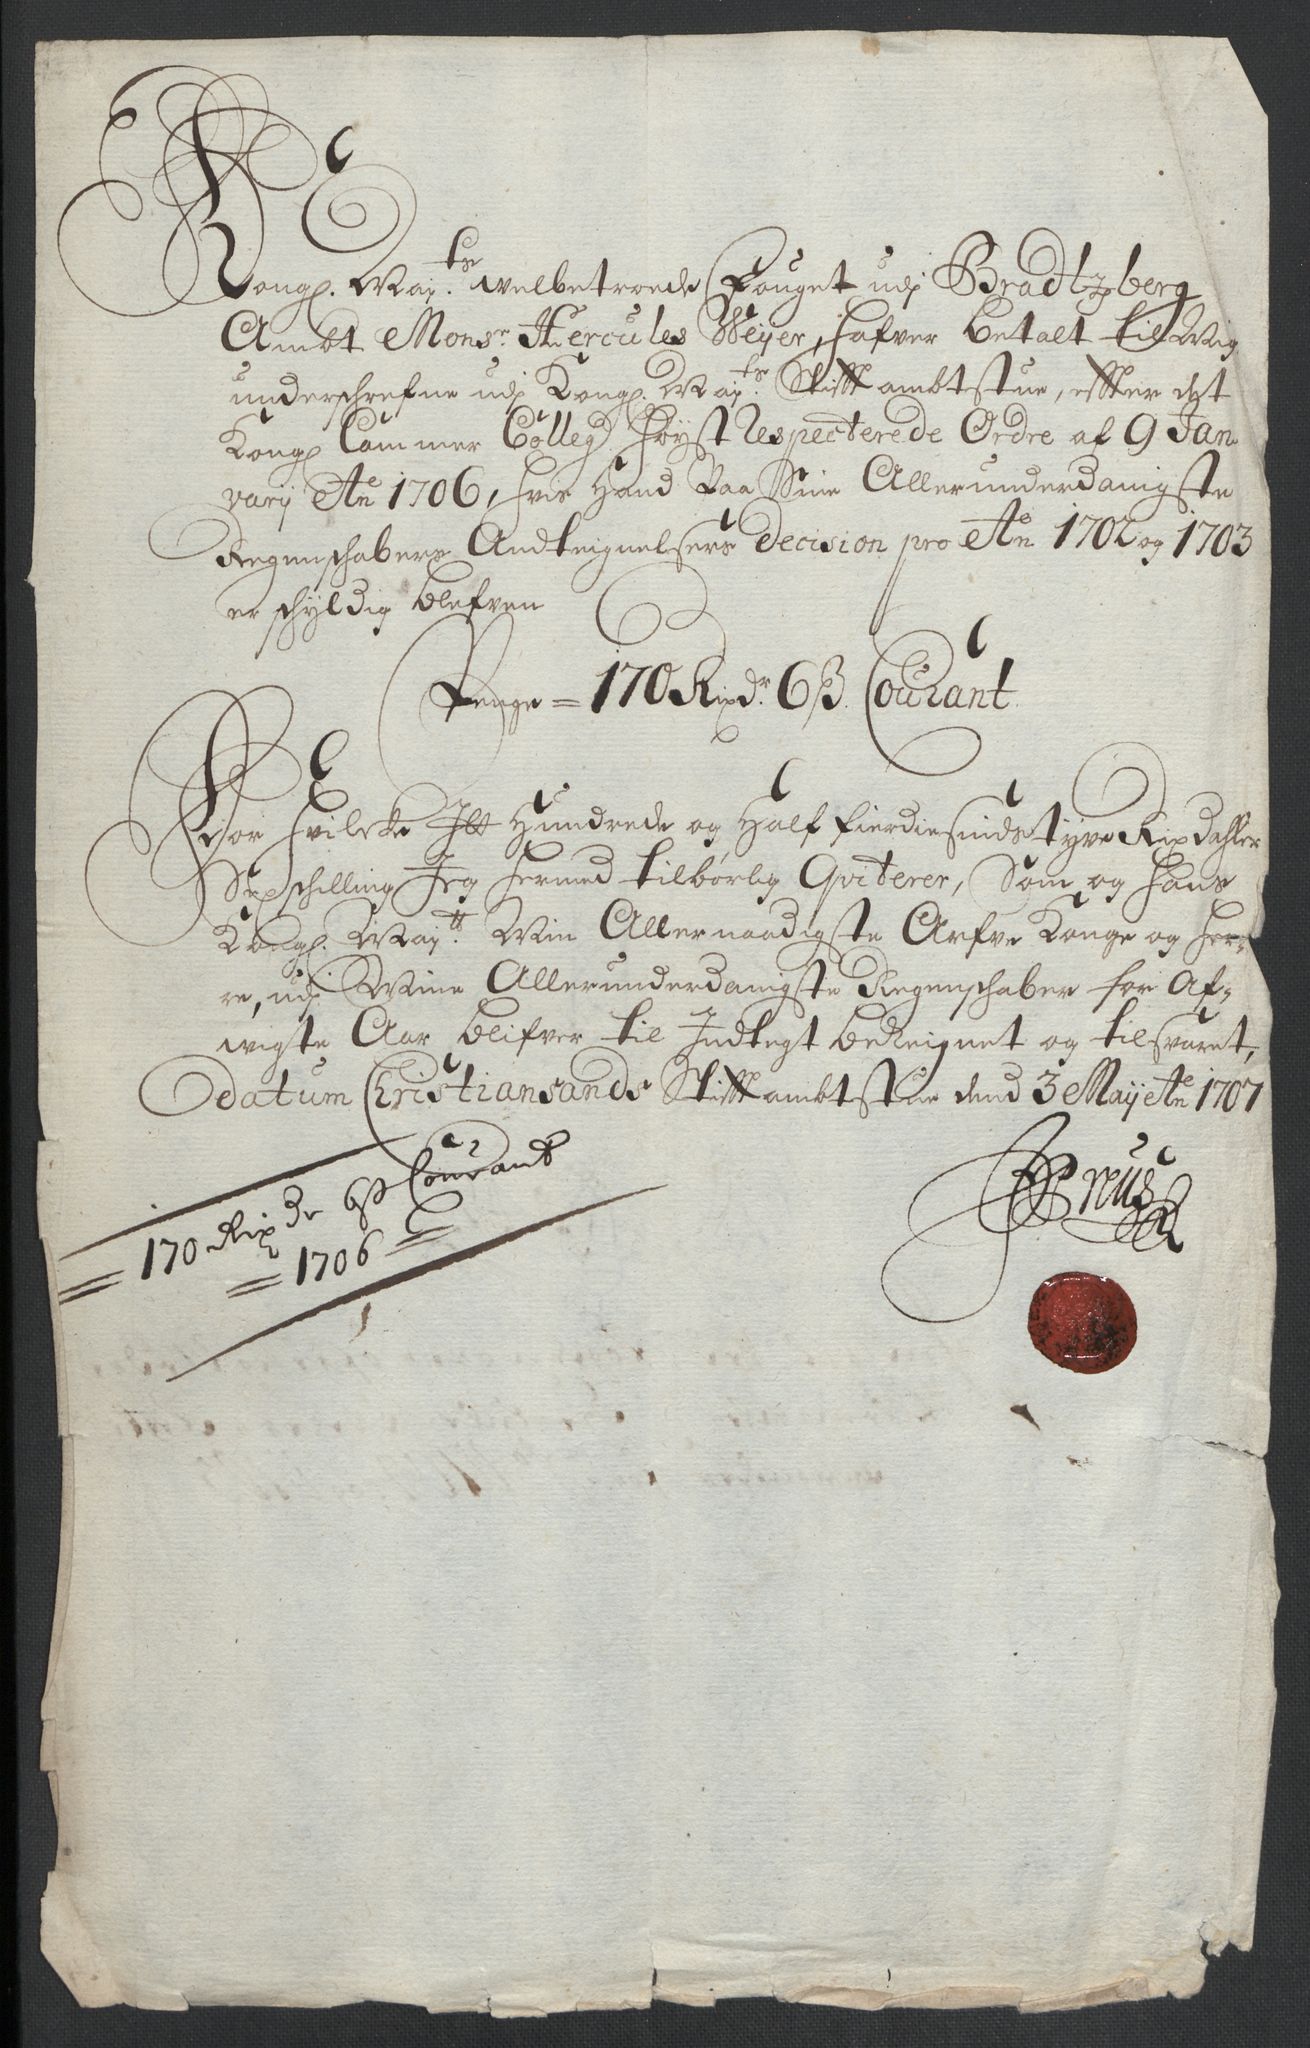 Kongl. May.ts welbetroede Fouget udj Bradtzberg
Ambt Monsr. Hercules Weyer, hafver betalt til Mig
underschrefne udj Kongl. May.ts Stifft ambtstue, effter det
Kongl Cammer Colleg. høyst Respecterede Ordre af 9 Jan-
varij Ao 1706, hvis Hand Paa Sine Allerunderdanigste
Regenschabers Andteignelsers Decision pro Ao 1702 og 1703
er schyldig blefven
Penge = 170 Rixdr. 6 ß. Courant
For hvilcke Itt Hundrede og Half fierdiesinds tyve Rixdahler
Sex schilling Jeg hermed tilbørlig Qviterer, Som og hans
Kongl. May.tt Min Allernaadigste Arfve Konge og Her-
re, udj Mine Allerunderdanigste Regenschaber for Af-
wigte Aar blifver til Indtegt beReignet og tilsvaret,
Datum Christiansands Stifft ambtstue dend 3 Maij Ao 1707
170 Rixdr 6 ß Courant
= 1706 =